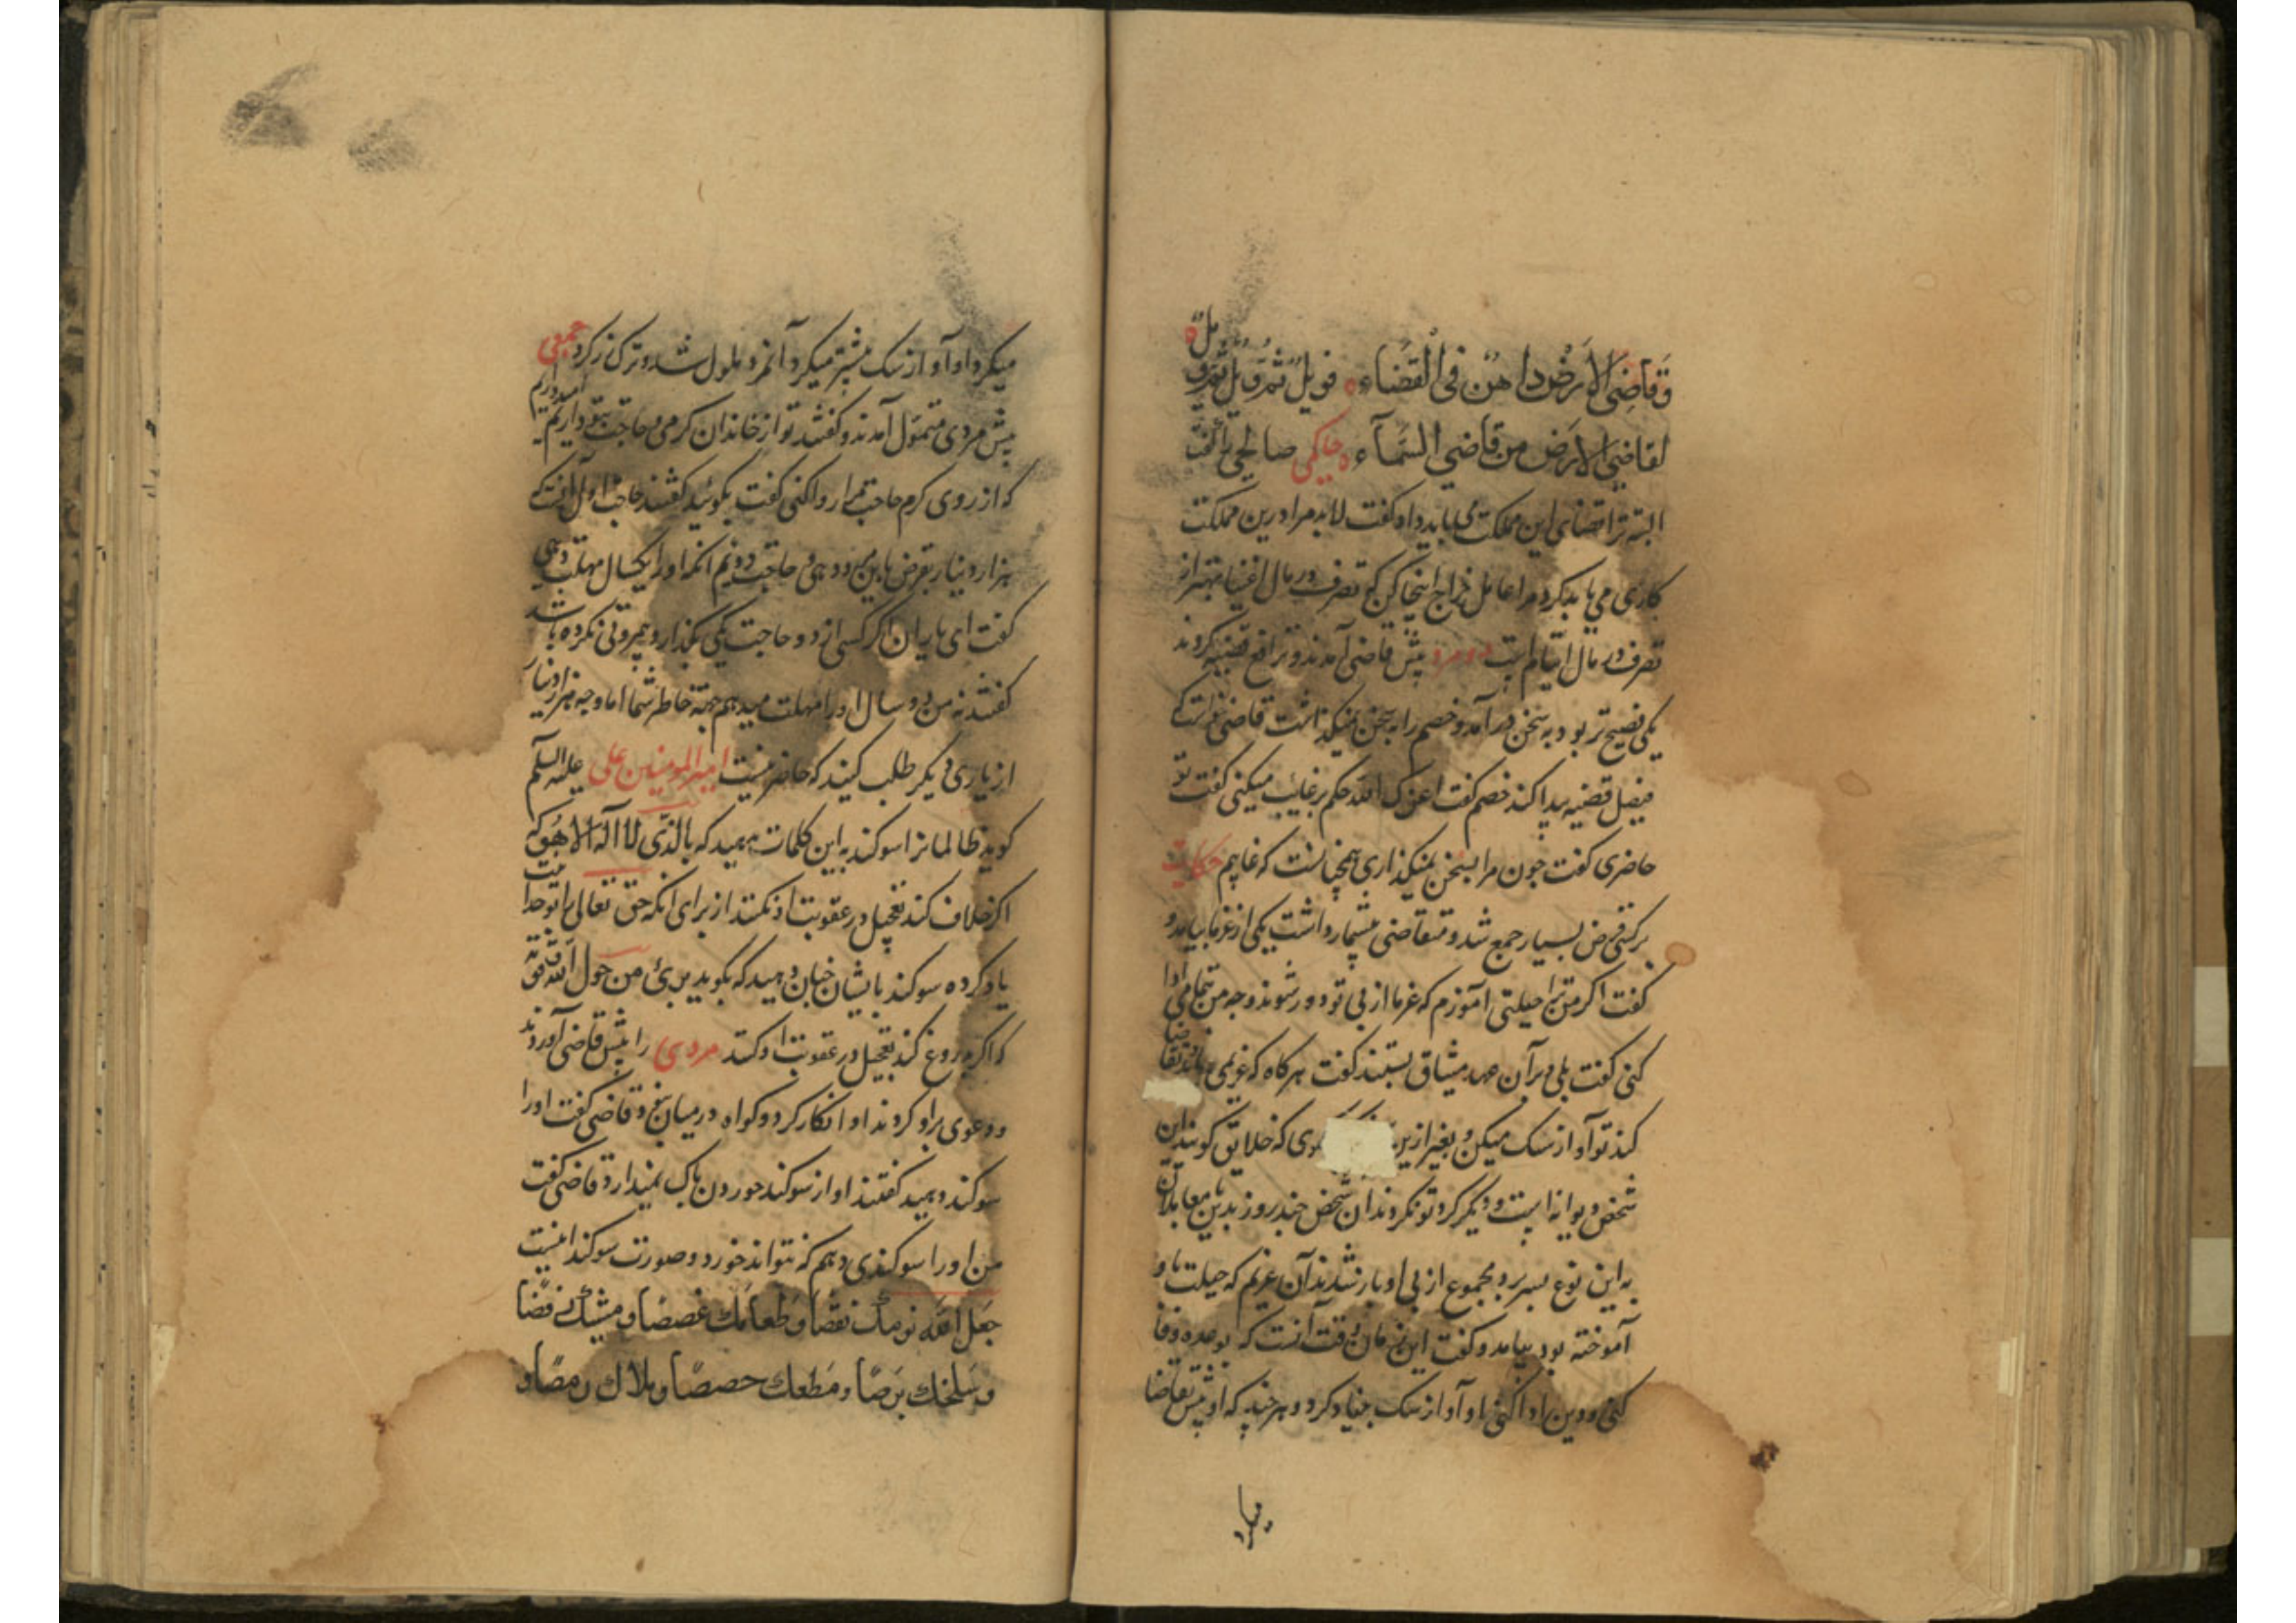 وقاضی الارض داهن فی القضاء فویل ثم ویل ثم ویل
لقاضی الارض من قاضی السماء حاکمی صالحی را گفت
البته ترا قضای این مملکت می باید داد گفت لابد مرا درین مملکت
کاری می باید کرد مرا عامل خراج اینجا کن که تصرف در مال اغنیا بهتر از
تصرف در مال ایتام است دو مرد پیش قاضی آمدند و ترافع قضیه کردند
یکی فصیح تر بود به سخن درآمد و خصم را به سخن نمیگذاشت قاضی خواست که
فیصل قضیه پیدا کند خصم گفت اعزک الله حکم بر غایب میکنی گفت تو
حاضری گفت چون مرا بسخن نمیگذاری همچنانست که غایبم حکایت
بر کسی قرض بسیار جمع شد و متقاضی بیشمار داشت یکی از غرما بیامد و
گفت اگر من ترا حیلتی آموزم که غرما از پی تو دور شوند وجه من تمامی ادا
کنی گفت بلی بر آن عهد میثاق بستند گفت هرگاه که غریمی تقاضا
کند تو آواز سگ میکن و بغیر ازین که خلایق گویند این
شخص دیوانه است و دیگر گرد تو نگردند آن شخص چند روز بدین معاملان
به این نوع بسر برد مجموع از پی او باز شدند آن غریم که حیلت باو
آموخته بود بیامد و گفت این زمان وقت آنست که بوعده وفا
کنی و دین ادا کنی او آواز سگ بنیاد کرد و هر چند که او پیش تقاضا
میکرد
میکرد او آواز سگ بیشتر میکرد آنمرد ملول شد و ترک زر کرد جمعی
پیش مردی متمول آمدند و گفتند تو از خاندان کرمی و حاجت بتو داریم امید داریم
که از روی کرم حاجت ما روا کنی گفت بگوئید گفتند حاجت اول آنست که
هزار دینار بقرض باین مرد دهی و حاجت دویم آنکه او را یکسال مهلت دهی
گفت ای یاران اگر کسی از دو حاجت یکی بگذارد بیمروتی نکرده باشد
گفتند نه من دو سال او را مهلت میدهم جهة خاطر شما اما وجه هزار دینار
از یاری دیگر طلب کنید که حاضر نیست امیر المومنین علی علیه السلم
گوید ظالمانرا سوگند به این کلمات مهید که بالذی لا اله الا هو که
اگر خلاف کند تعجیل در عقوبت او نکنند از برای آنکه حق تعالی را بوحدانیت
یاد کرده سوگند بایشان چنان دهید که بگوید بریء من حول الله و قوته
که اگر دروغ کند تعجیل در عقوبت او کند مردی را پیش قاضی آوردند
و دعوی براو کردند او انکار کرد و گواه در میان نبود قاضی گفت او را
سوگند دهید گفتند او از سوگند خوردن باک نمیدارد قاضی گفت
من او را سوگندی دهم که نتواند خورد و صورت سوگند اینست
جعل الله نومک نقصا و طعامک غصصا و مشیک رقصا
و سلخک برصا و مطعک حصصا و بلاک رمصا و